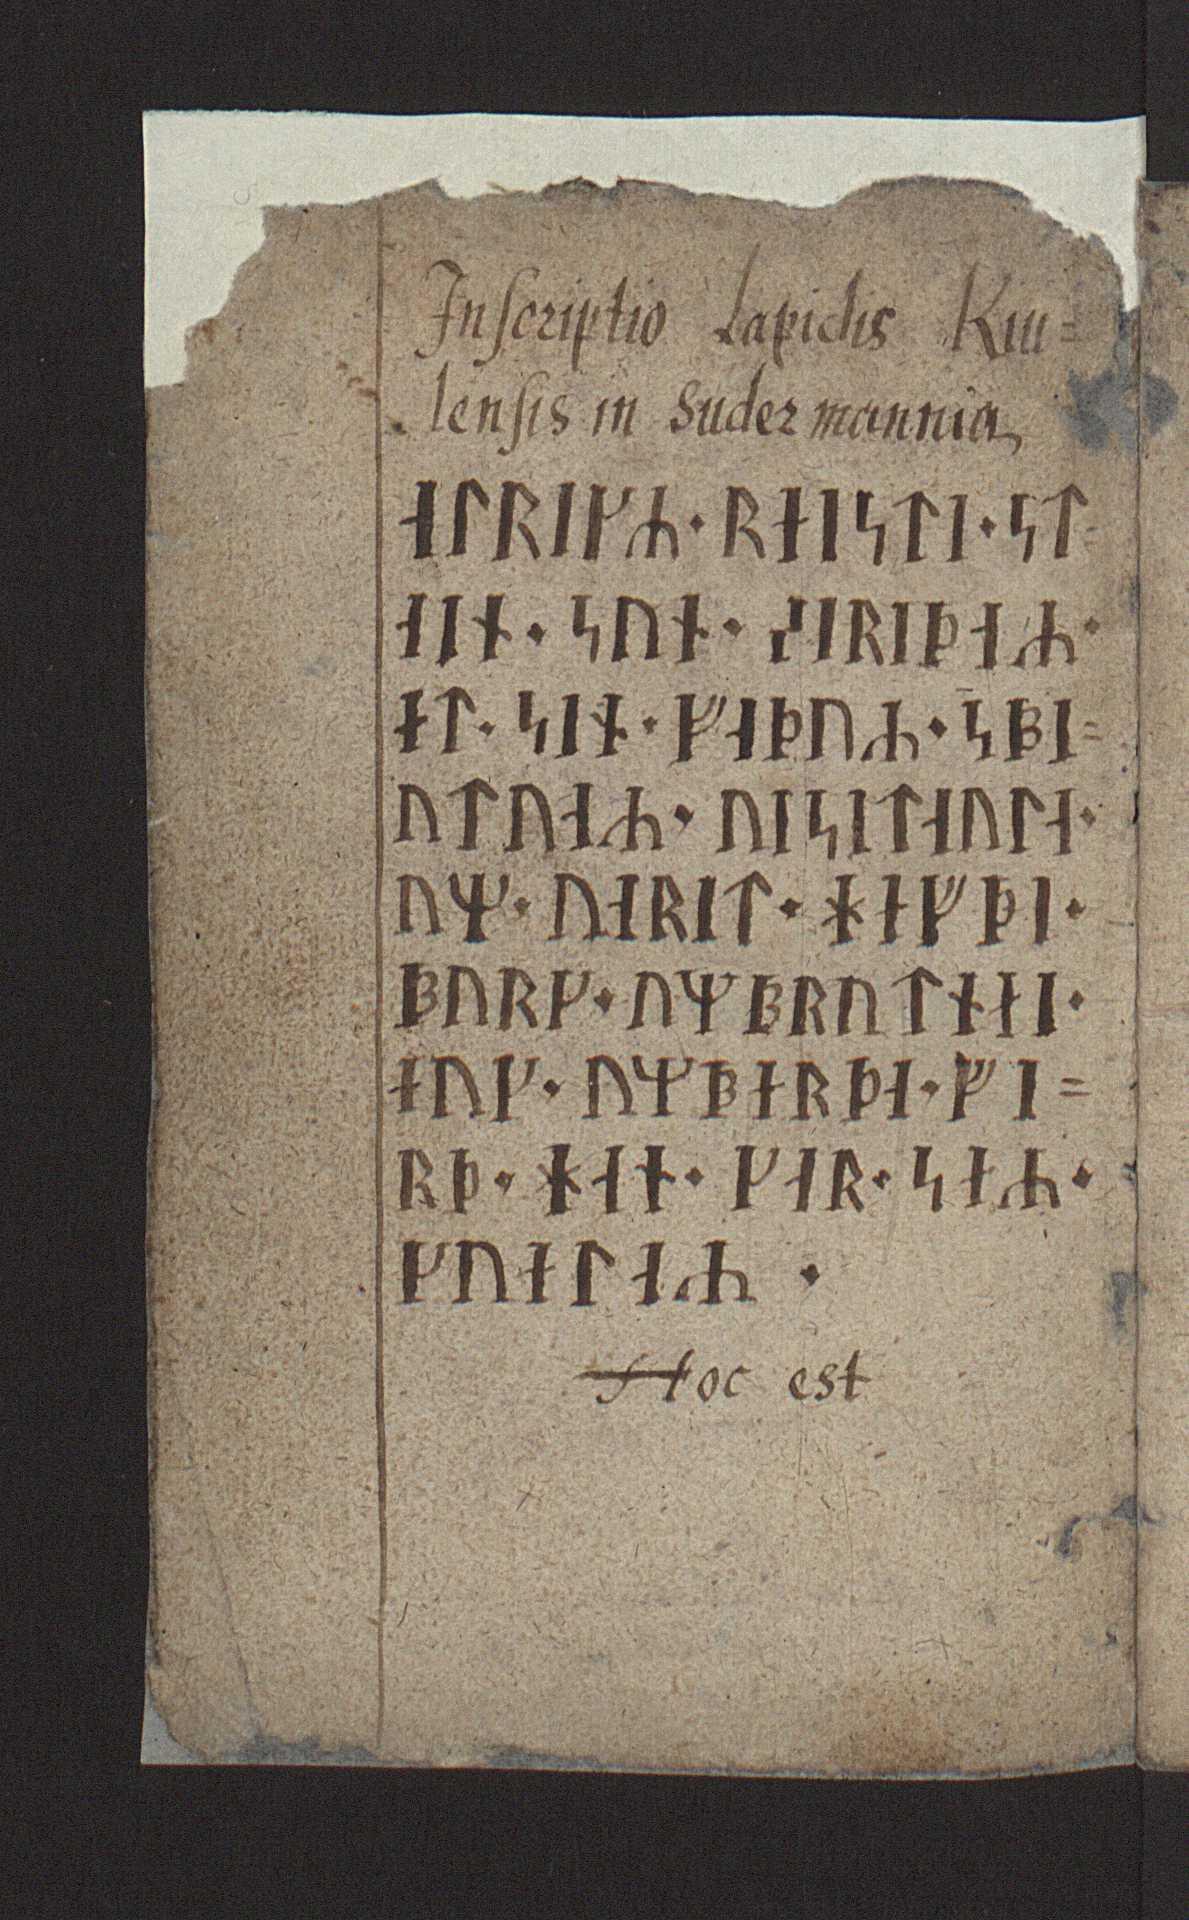 Inſcriptio Lapidis Kiu=
lenſis in Sudermannia,
ᛆᛚᚱᛁᚴᛦ᛫ᚱᛆᛁᛋᛏᛁ᛫ᛋᛏ=
ᛆᛁᚾ᛫ᛋᚢᚾ᛫ᛋᛁᚱᛁᚦᛆᛦ᛫
ᛆᛏ᛫ᛋᛁᚾ᛫ᚠᛆᚦᚢᛦ᛫ᛋᛒᛁ=
ᚢᛏᚢᛆᛦ᛫ᚢᛁᛋᛁᛏᛆᚢᛚᛆ᛫
ᚢᛘ᛫ᚢᛆᚱᛁᛏ᛫ᚼᛆᚠᚦᛁ᛫
ᛒᚢᚱᚴ᛫ᚢᛘᛒᚱᚢᛏᚾᛆᛁ᛫
ᛆᚢᚴ᛫ᚢᛘᛒᛆᚱᚦᛆ᛫ᚠᛁ=
ᚱᚦ᛫ᚼᛆᚾ᛫ᚴᛆᚱ᛫ᛋᛆᛦ᛫
ᚴᚢᚾᛚᛆᛦ᛫
Hoc est